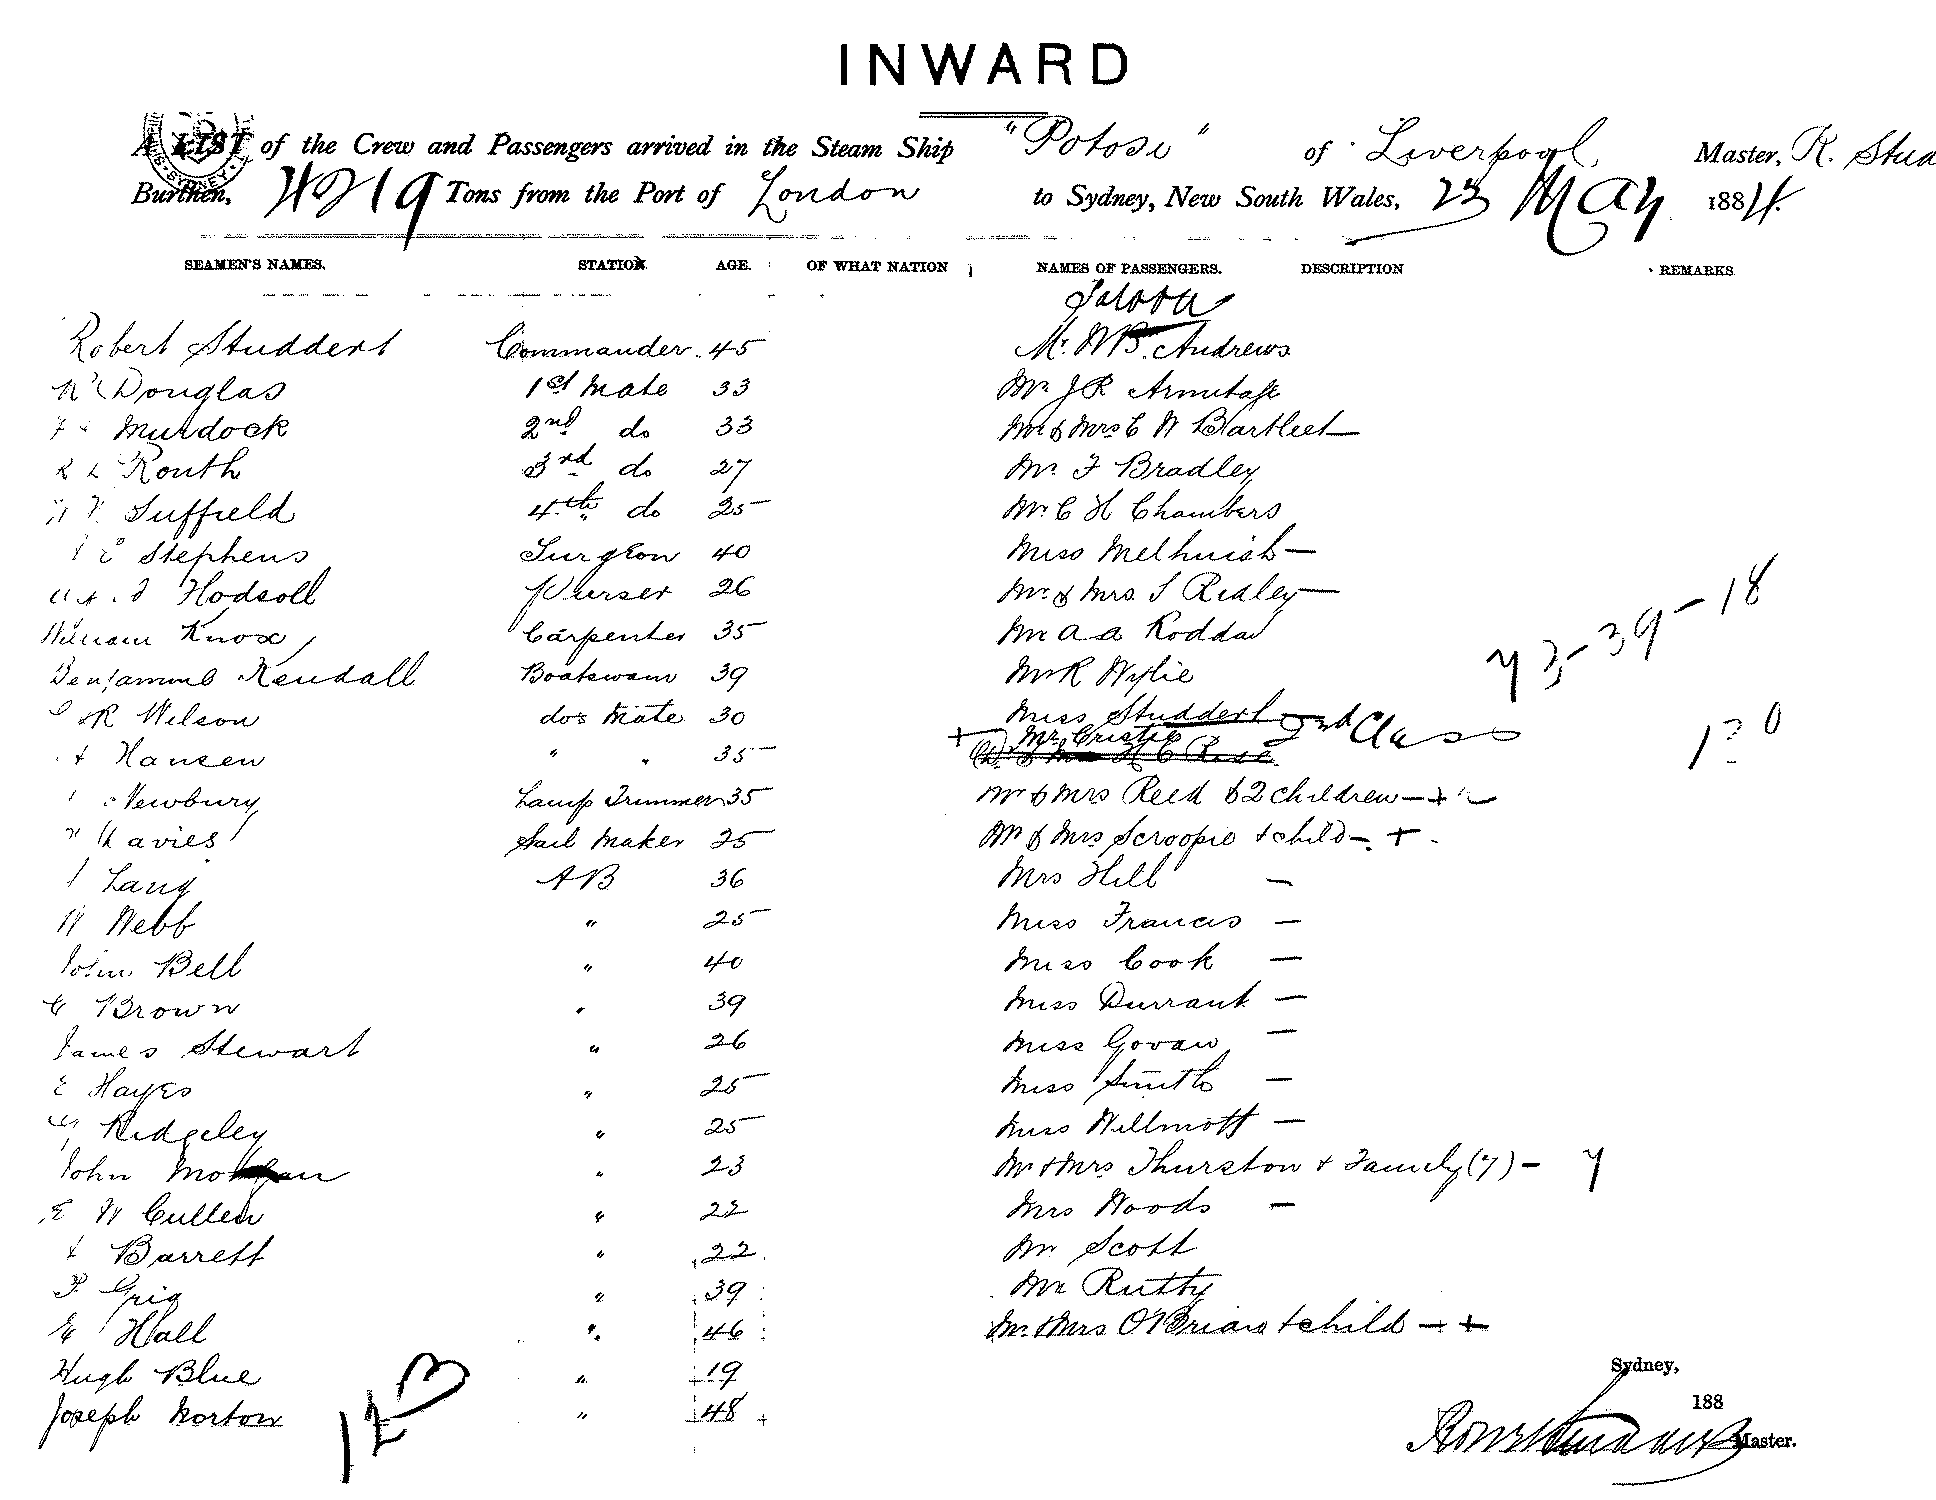 INWARD
A LIST of the Crew and Passengers arrived in the Steam Ship "Potosi" of Liverpool, Master, R. Stud
Burthen, 4219 Tons from the Port of London to Sydney, New South Wales, 23 May 1884.
SEAMEN'S NAMES. STATION. AGE. OF WHAT NATION NAMES OF PASSENGERS. DESCRIPTION REMARKS
Saloon
Robert Studdert Commander. 45 Mr. W B. Andrews
Douglas 1st Mate 33 Mr J R Armitage
Murdock 2nd do 33 Mr & Mrs C W Bartleet
Routh 3rd do 27 Mr. F Bradley
Suffield 4th do 25 Mr. C H Chambers
Stephens Surgeon 40 Miss Melhuish
Hodsoll Purser 26 Mr. & Mrs. S Ridley
William Knox Carpenter 35 Mr A A Roddan
Benjamin Kendall Boatswain 39 Mr R Wylie
R Wilson dos Mate 30 Miss Studdert
+ Mr Cristie 2nd Class
Hansen " " 35
Newbury Lamp Trimmer 35 Mr & Mrs Reed & 2 children - +
Davies Sail Maker 25 Mr & Mrs Scroopie & child - +
Lang AB 36 Mrs Hill -
W Webb " 25 Miss Francis -
John Bell " 40 Miss Cook -
Brown " 39 Miss Durrant -
James Stewart " 26 Miss Govan -
E Hayes " 25 Miss Smith -
Ridgeley " 25 Miss Willmott -
John Morgan " 23 Mr & Mrs Thurston & Family (7) - 7
E W Cullen " 22 Mrs Woods -
Barrett " 22 Mr Scott
Grig " 39 Mr Rutty
Hall " 46 Mr. & Mrs O'Brian & child - +
Hugh Blue " 19
Joseph Norton " 48
123
73-39-18
130
Sydney,
188
Master.